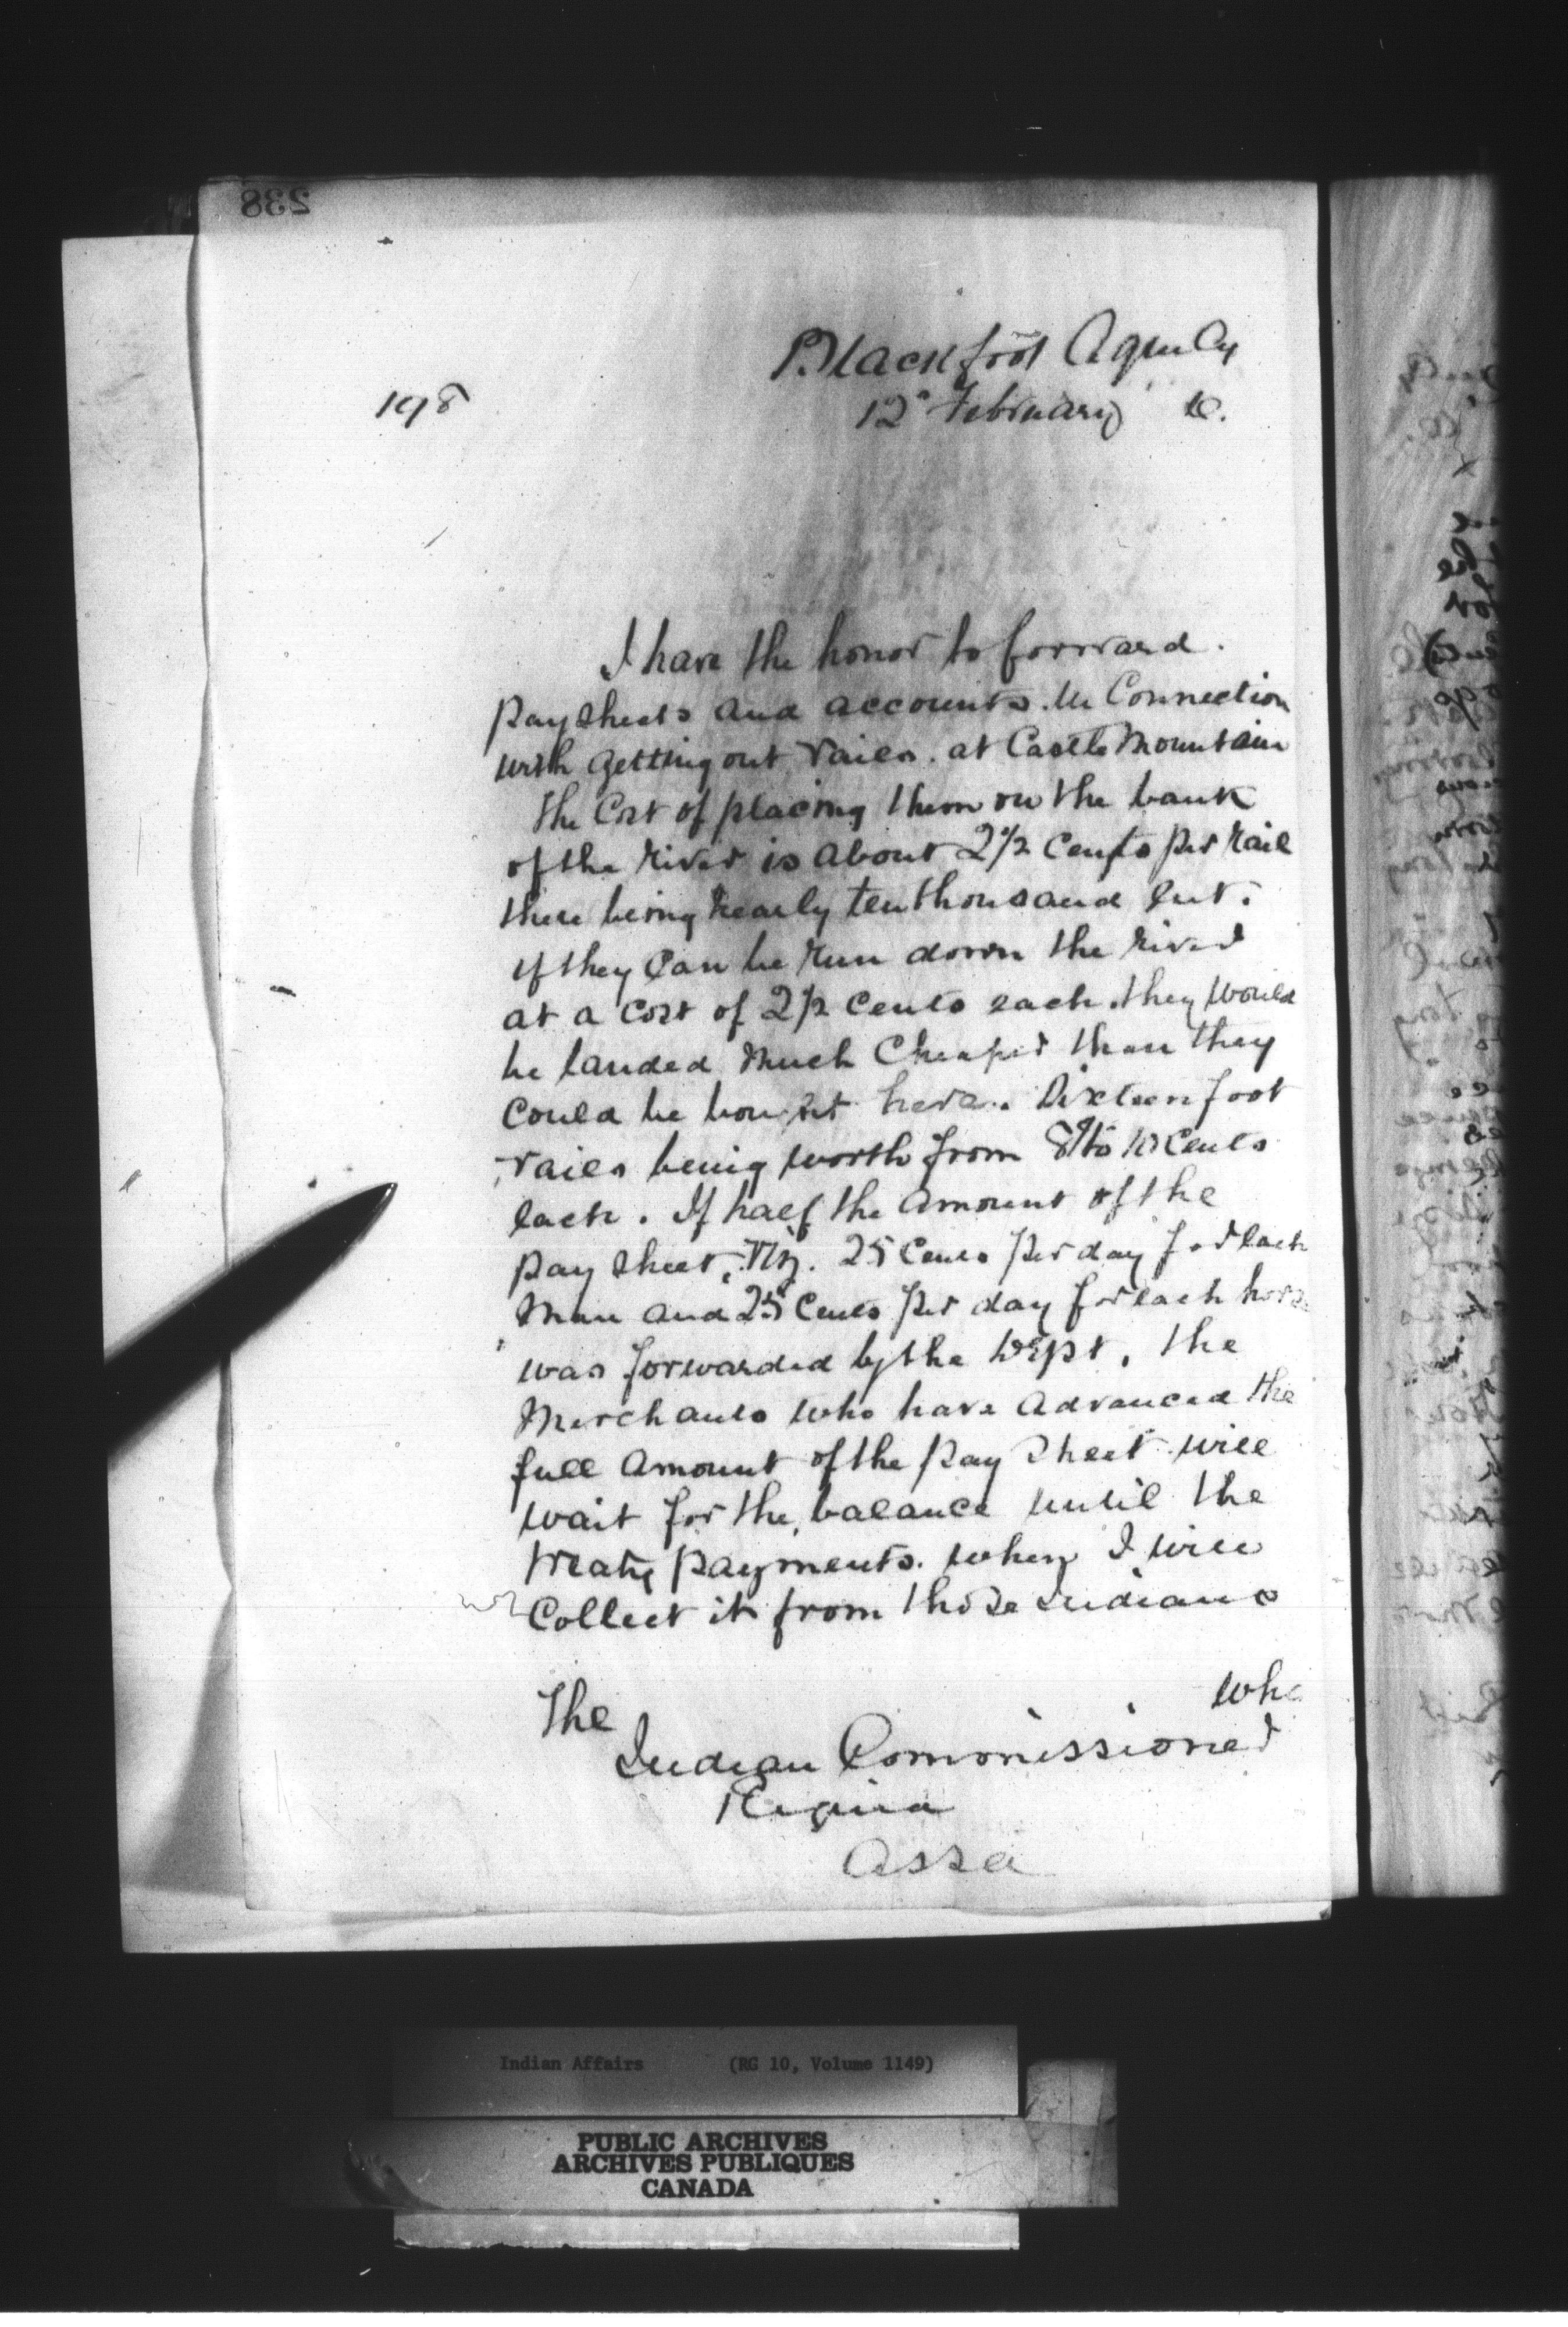 238
Blackfoot Agency
198
12" February
I have the honor to forward.
pay sheets and accounts. in Connection
with getting out rails. at Castle Mountain
the Cost of placing them on the bank
of the river is about 2 1/2 Cents per rail
there being nearly ten thousand cut.
If they Can be run down the river
at a cost of 2 1/2 cents each. they would
be landed much Cheaper than they
could be bought here. Sixteen foot
rails being worth from 8 to 10 Cents
each. If half the amount of the
pay sheet, Viz. 25 Cents per day for each
man and 25 Cents per day for each horse
was forwarded by the Dept. the
Merchants who have advanced the
full amount of the pay sheet will
wait for the balance until the
treaty payments. when I will
Collect it from those Indians
who
The
Indian Commissioner
Regina
Assa
Indian Affairs (RG 10, Volume 1149)
PUBLIC ARCHIVES
ARCHIVES PUBLIQUES
CANADA